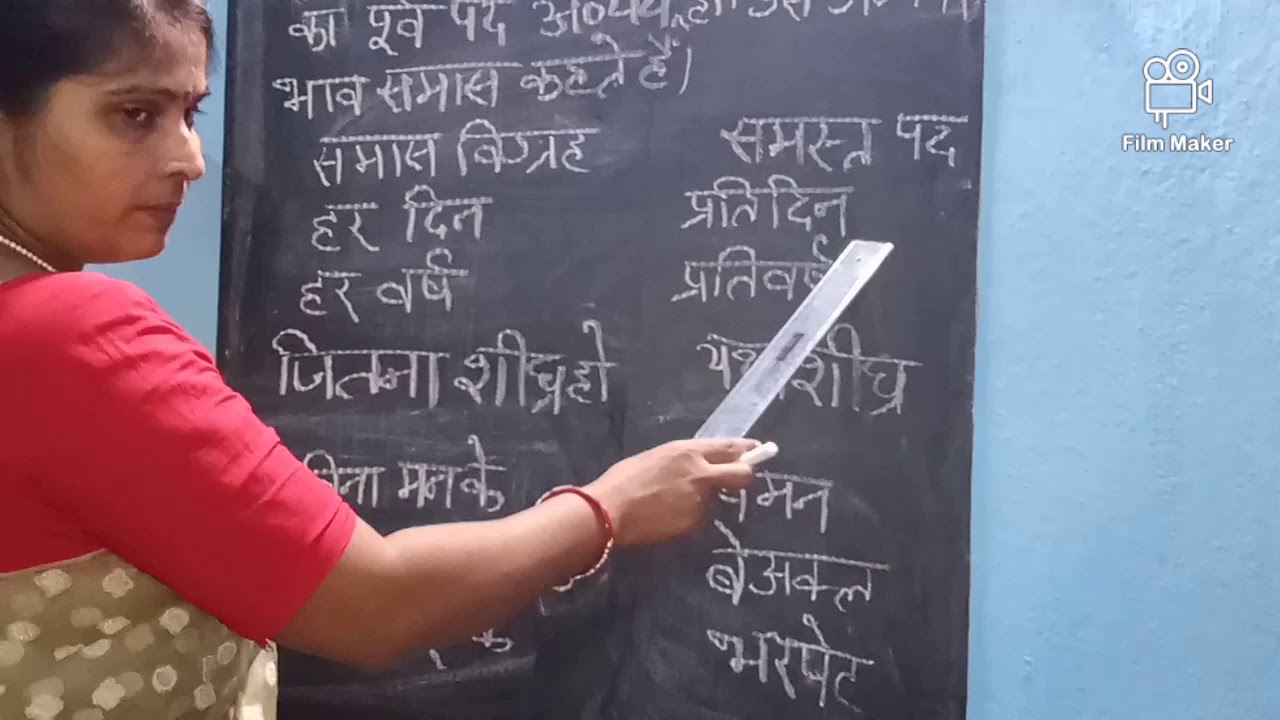 का पूर्व पद अव्यय हो उसे
भाव समास कहते हैं।
समास विग्रह समस्त पद
हर दिन प्रतिदिन
हर वर्ष प्रतिवर्ष
जितना शीघ्र हो शीघ्र
बिना मन के मन
बेअक्ल
भरपेट
Film Maker